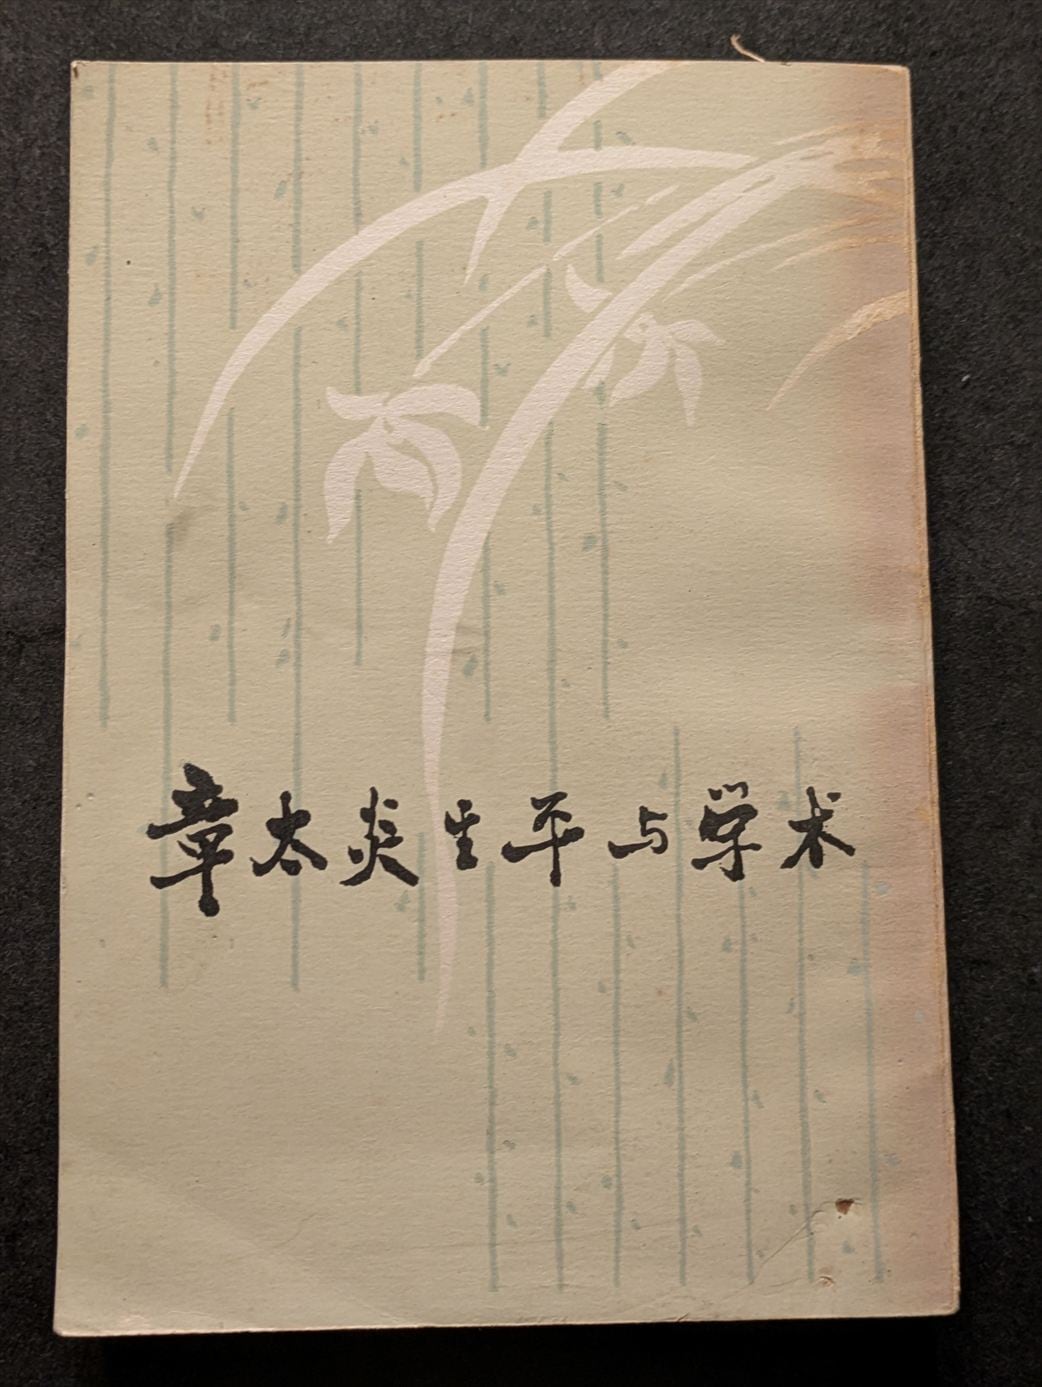 章太炎生平与学术